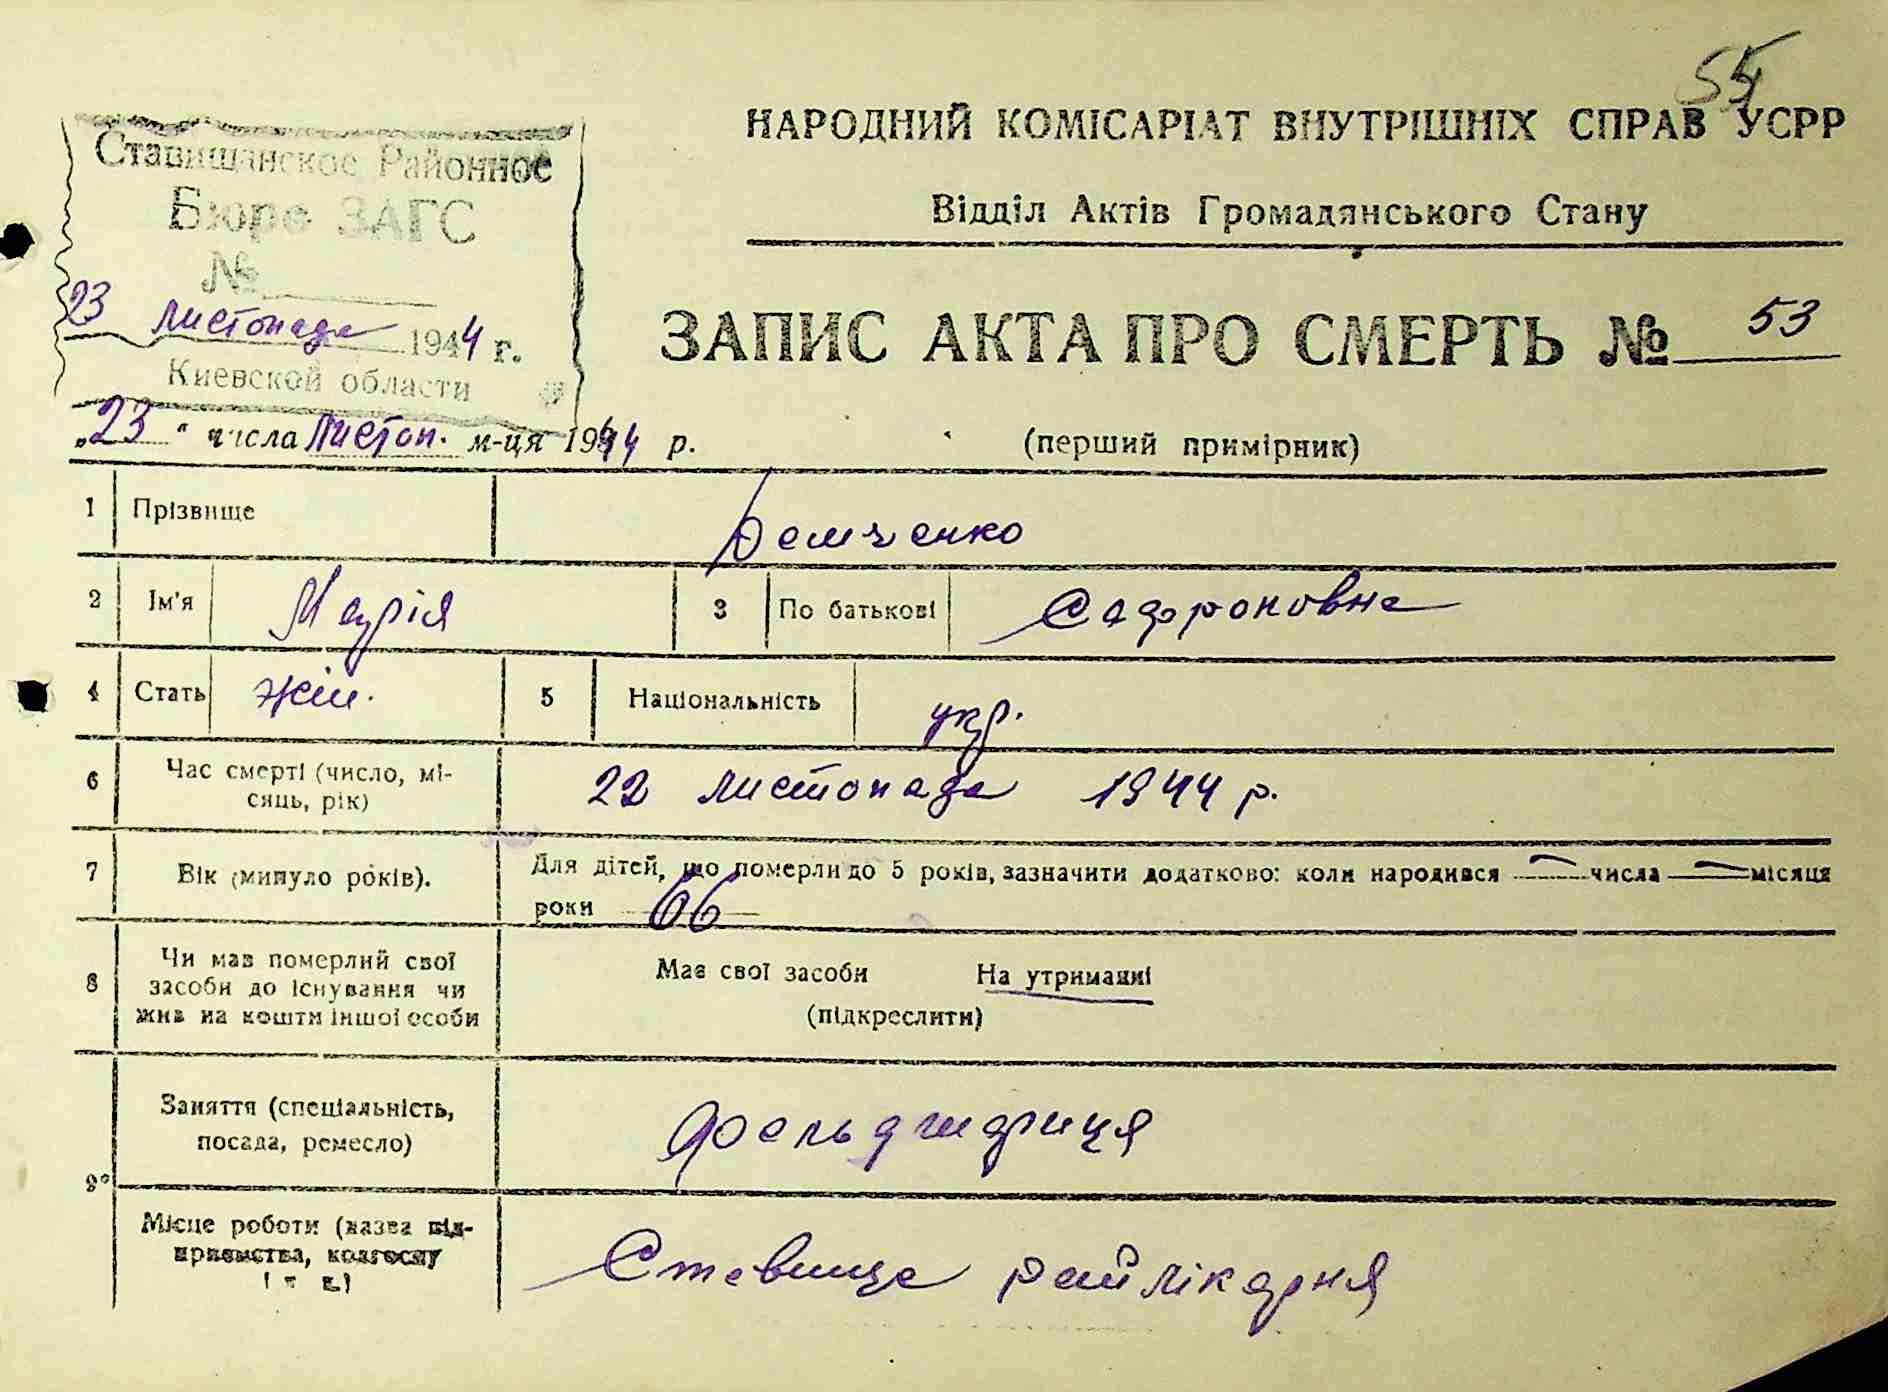 55
НАРОДНИЙ КОМІСАРІАТ ВНУТРІШНІХ СПРАВ УСРР
Відділ Актів Громадянського Стану
Ставищанское Районное
Бюро ЗАГС
№
23 листопада 1944 г.
Киевской области
ЗАПИС АКТА ПРО СМЕРТЬ № 53
„23“ числа Листоп. м-ця 1944 р.
(перший примірник)
1 Прізвище Демченко
2 Ім'я Марія 3 По батькові Сафроновна
4 Стать жін. 5 Національність укр.
6 Час смерті (число, мі-
сяць, рік) 22 листопада 1944 р.
7 Вік (минуло років). Для дітей, що померли до 5 років, зазначити додатково: коли народився — числа — місяця
роки 66
8 Чи мав померлий свої
засоби до існування чи
жив на кошти іншої особи
Має свої засоби На утриманні
(підкреслити)
9 Заняття (спеціальність,
посада, ремесло) фельдшериця
Місце роботи (назва під-
приємства, колгоспу
і т. д.) Ставище райлікарня